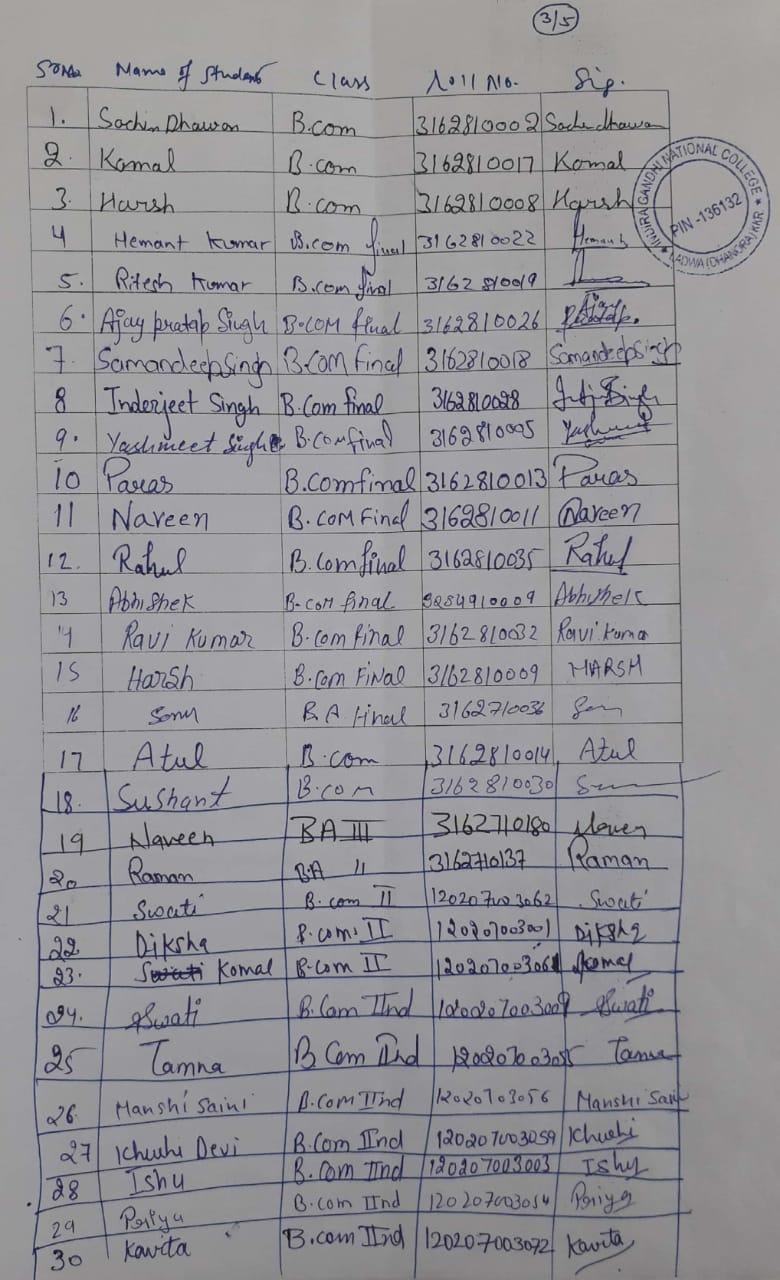 3/5
Sr No. Name of Student Class Roll No. Sig.
1. Sachin Dhawan B.com 3162810002 Sachindhawan
2. Komal B.com 3162810017 Komal
3. Harsh B.com 3162810008 Harsh
INDIRA GANDHI NATIONAL COLLEGE
PIN-136132
LADWA (DHANORA) KKR.
4 Hemant Kumar B.com final 3162810022 Hemant
5. Ritesh Kumar B.com final 3162810019
6. Ajay pratap Singh B.COM final 3162810026
7. Samandeep Singh B.COM Final 3162810018 Samandeep Singh
8 Inderjeet Singh B.Com final 3162810028
9. Yashmeet Singh B.COM final 3162810005 Yashmeet
10 Paras B.Com final 3162810013 Paras
11 Naveen B.COM Final 3162810011 Naveen
12. Rahul B.Com final 3162810035 Rahul
13 Abhishek B.COM final 5284910009 Abhishek
14 Ravi Kumar B.com Final 3162810032 Ravi Kumar
15 Harsh B.Com FiNal 3162810009 HARSH
16 Sonu B.A Final 3162710036
17 Atul B.com 3162810014 Atul
18. Sushant B.com 3162810030
19 Naveen BA III 3162710180 Naven
20 Raman B.A 11 3162710137 Raman
21 Swati B.com II 120207003062 Swati
22 Diksha B.com. II 120207003001 Diksha
23. Komal B.com II 120207003061 Komal
24. Swati B.Com IInd 120207003009 Swati
25 Tamna B Com IInd 120207003055 Tamna
26. Manshi Saini B.Com IInd 12020703056 Manshi Saini
27 Khushi Devi B.Com IInd 120207003059 Khushi
28 Ishu B.Com IInd 120207003003 Ishu
29 Priya B.com IInd 120207003054 Priya
30 Kavita B.com IInd 120207003072 Kavita